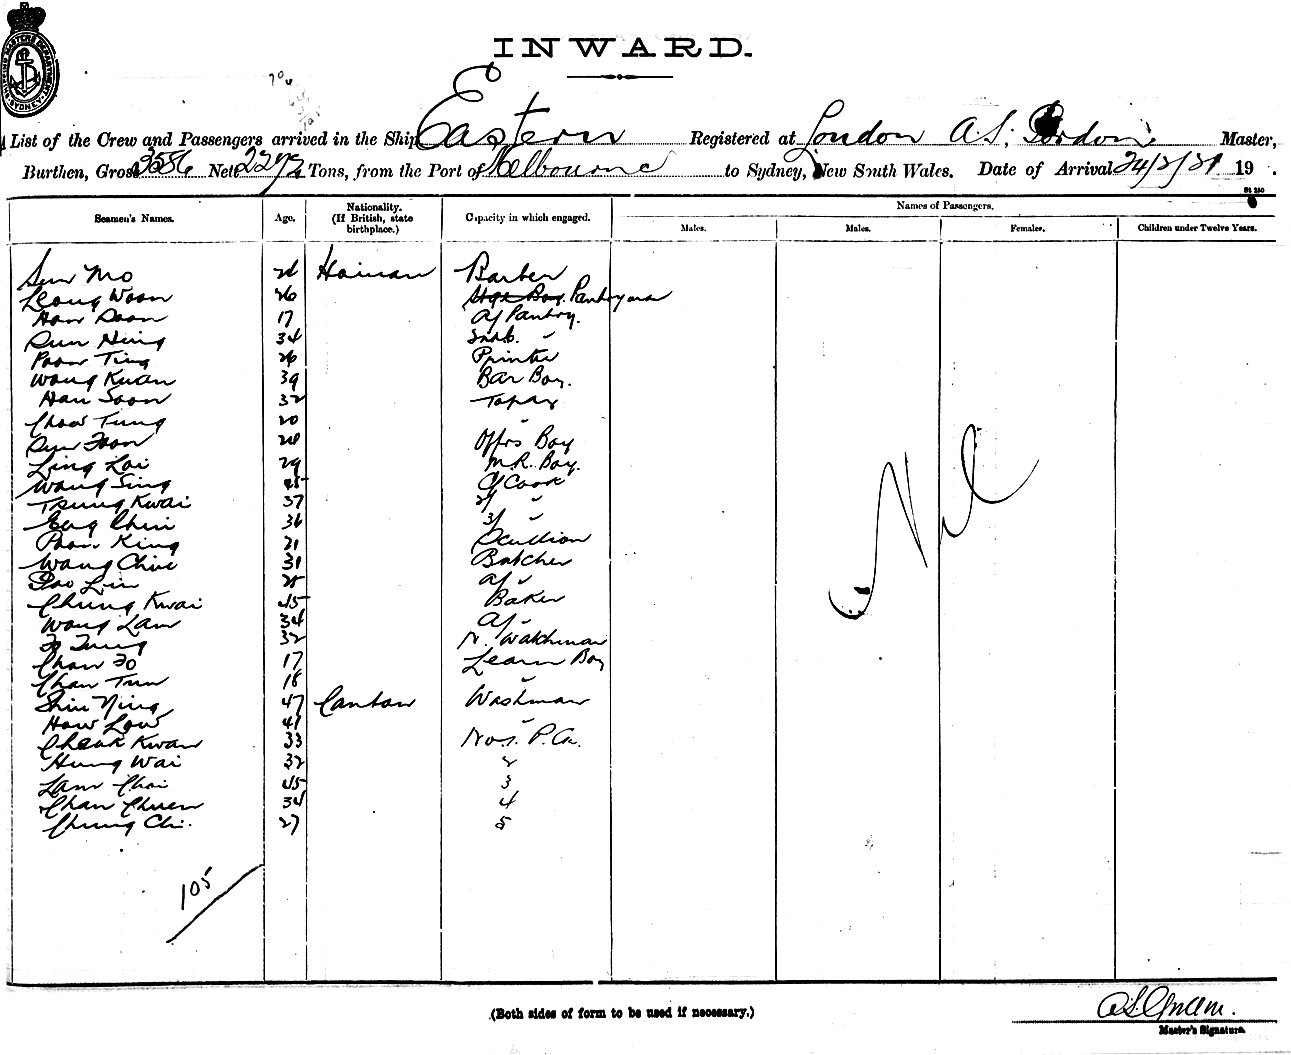 INWARD.
List of the Crew and Passengers arrived in the Ship Eastern Registered at London A. S. Gordon Master,
Burthen, Gross 3586 Nett 2272 Tons, from the Port of Melbourne to Sydney, New South Wales. Date of Arrival 24/2/31 19 .
Seamen's Names. Age. Nationality. (If British, state birthplace.) Capacity in which engaged. Names of Passengers.
Males. Males. Females. Children under Twelve Years.
Sun Mo Hainan Barber
Leong Woon 26 Stge Boy Pantryman
How Poon 17 A/ Pantry.
Sun Hing 34
Poon Ting 26 Printer
Wong Kuan 39 Bar Boy.
Han Soon 32 Topaz
Chow Tung 20 "
Foon Offrs Boy
Ling Loi 29 M.R. Boy.
Wong Sing 45 C/ Cook
Tsung Kwai 37 2/ "
Chui 36 3/ "
Poon King 21 Scullion
Wong Chue 31 Butcher
Lin A/ "
Chung Kwai 45 Baker
Wong Lam 34 A/ "
Tung 32 N. Watchman
Chan Fo 17 Learn Boy
Chan Tun 18 "
Shiu Ying 47 Canton Washman
How Low 41 "
Cheuk Kwan 33 No 1. P.Ca.
Hung Wai 32 2
Lam Choi 45 3
Chan Chuen 34 4
Chung Chi. 27 5
Nil
105
(Both sides of form to be used if necessary.)
Master's Signature.